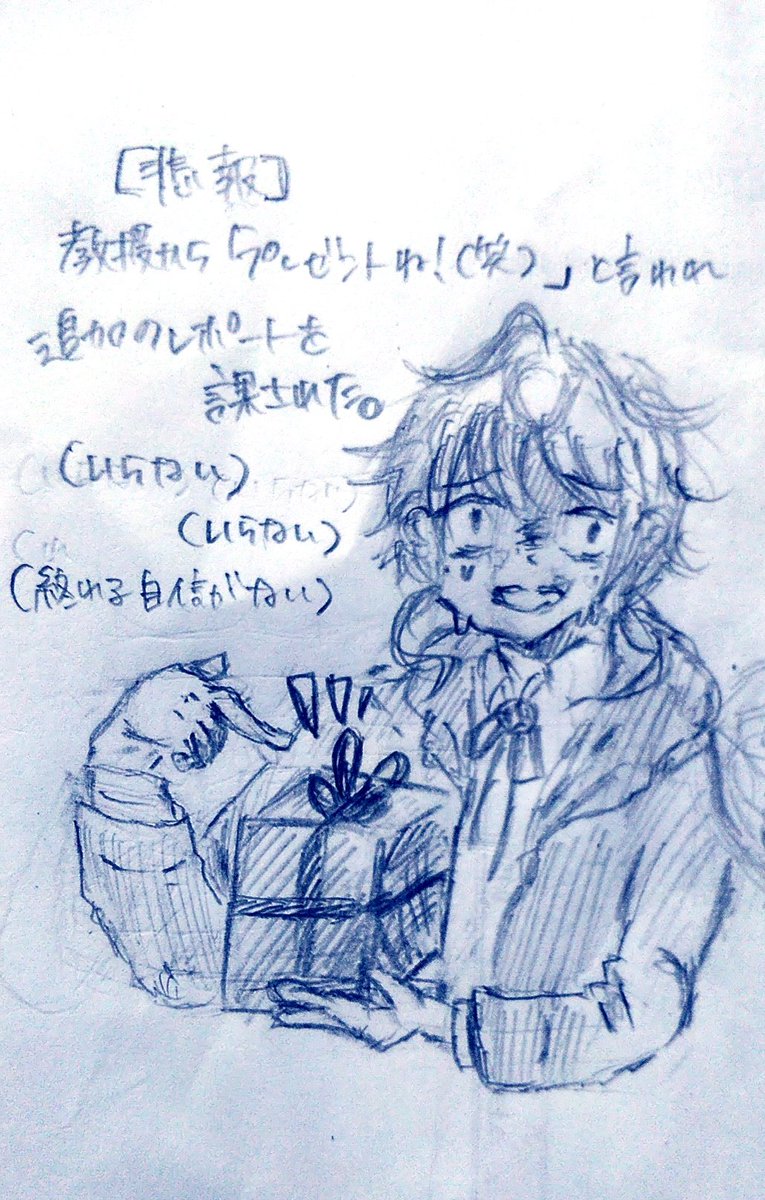 [悲報]
教授から「プレゼントね!(笑)」と言われ
追加のレポートを
課された。
(いらない)
(いらない)
(終れる自信がない)